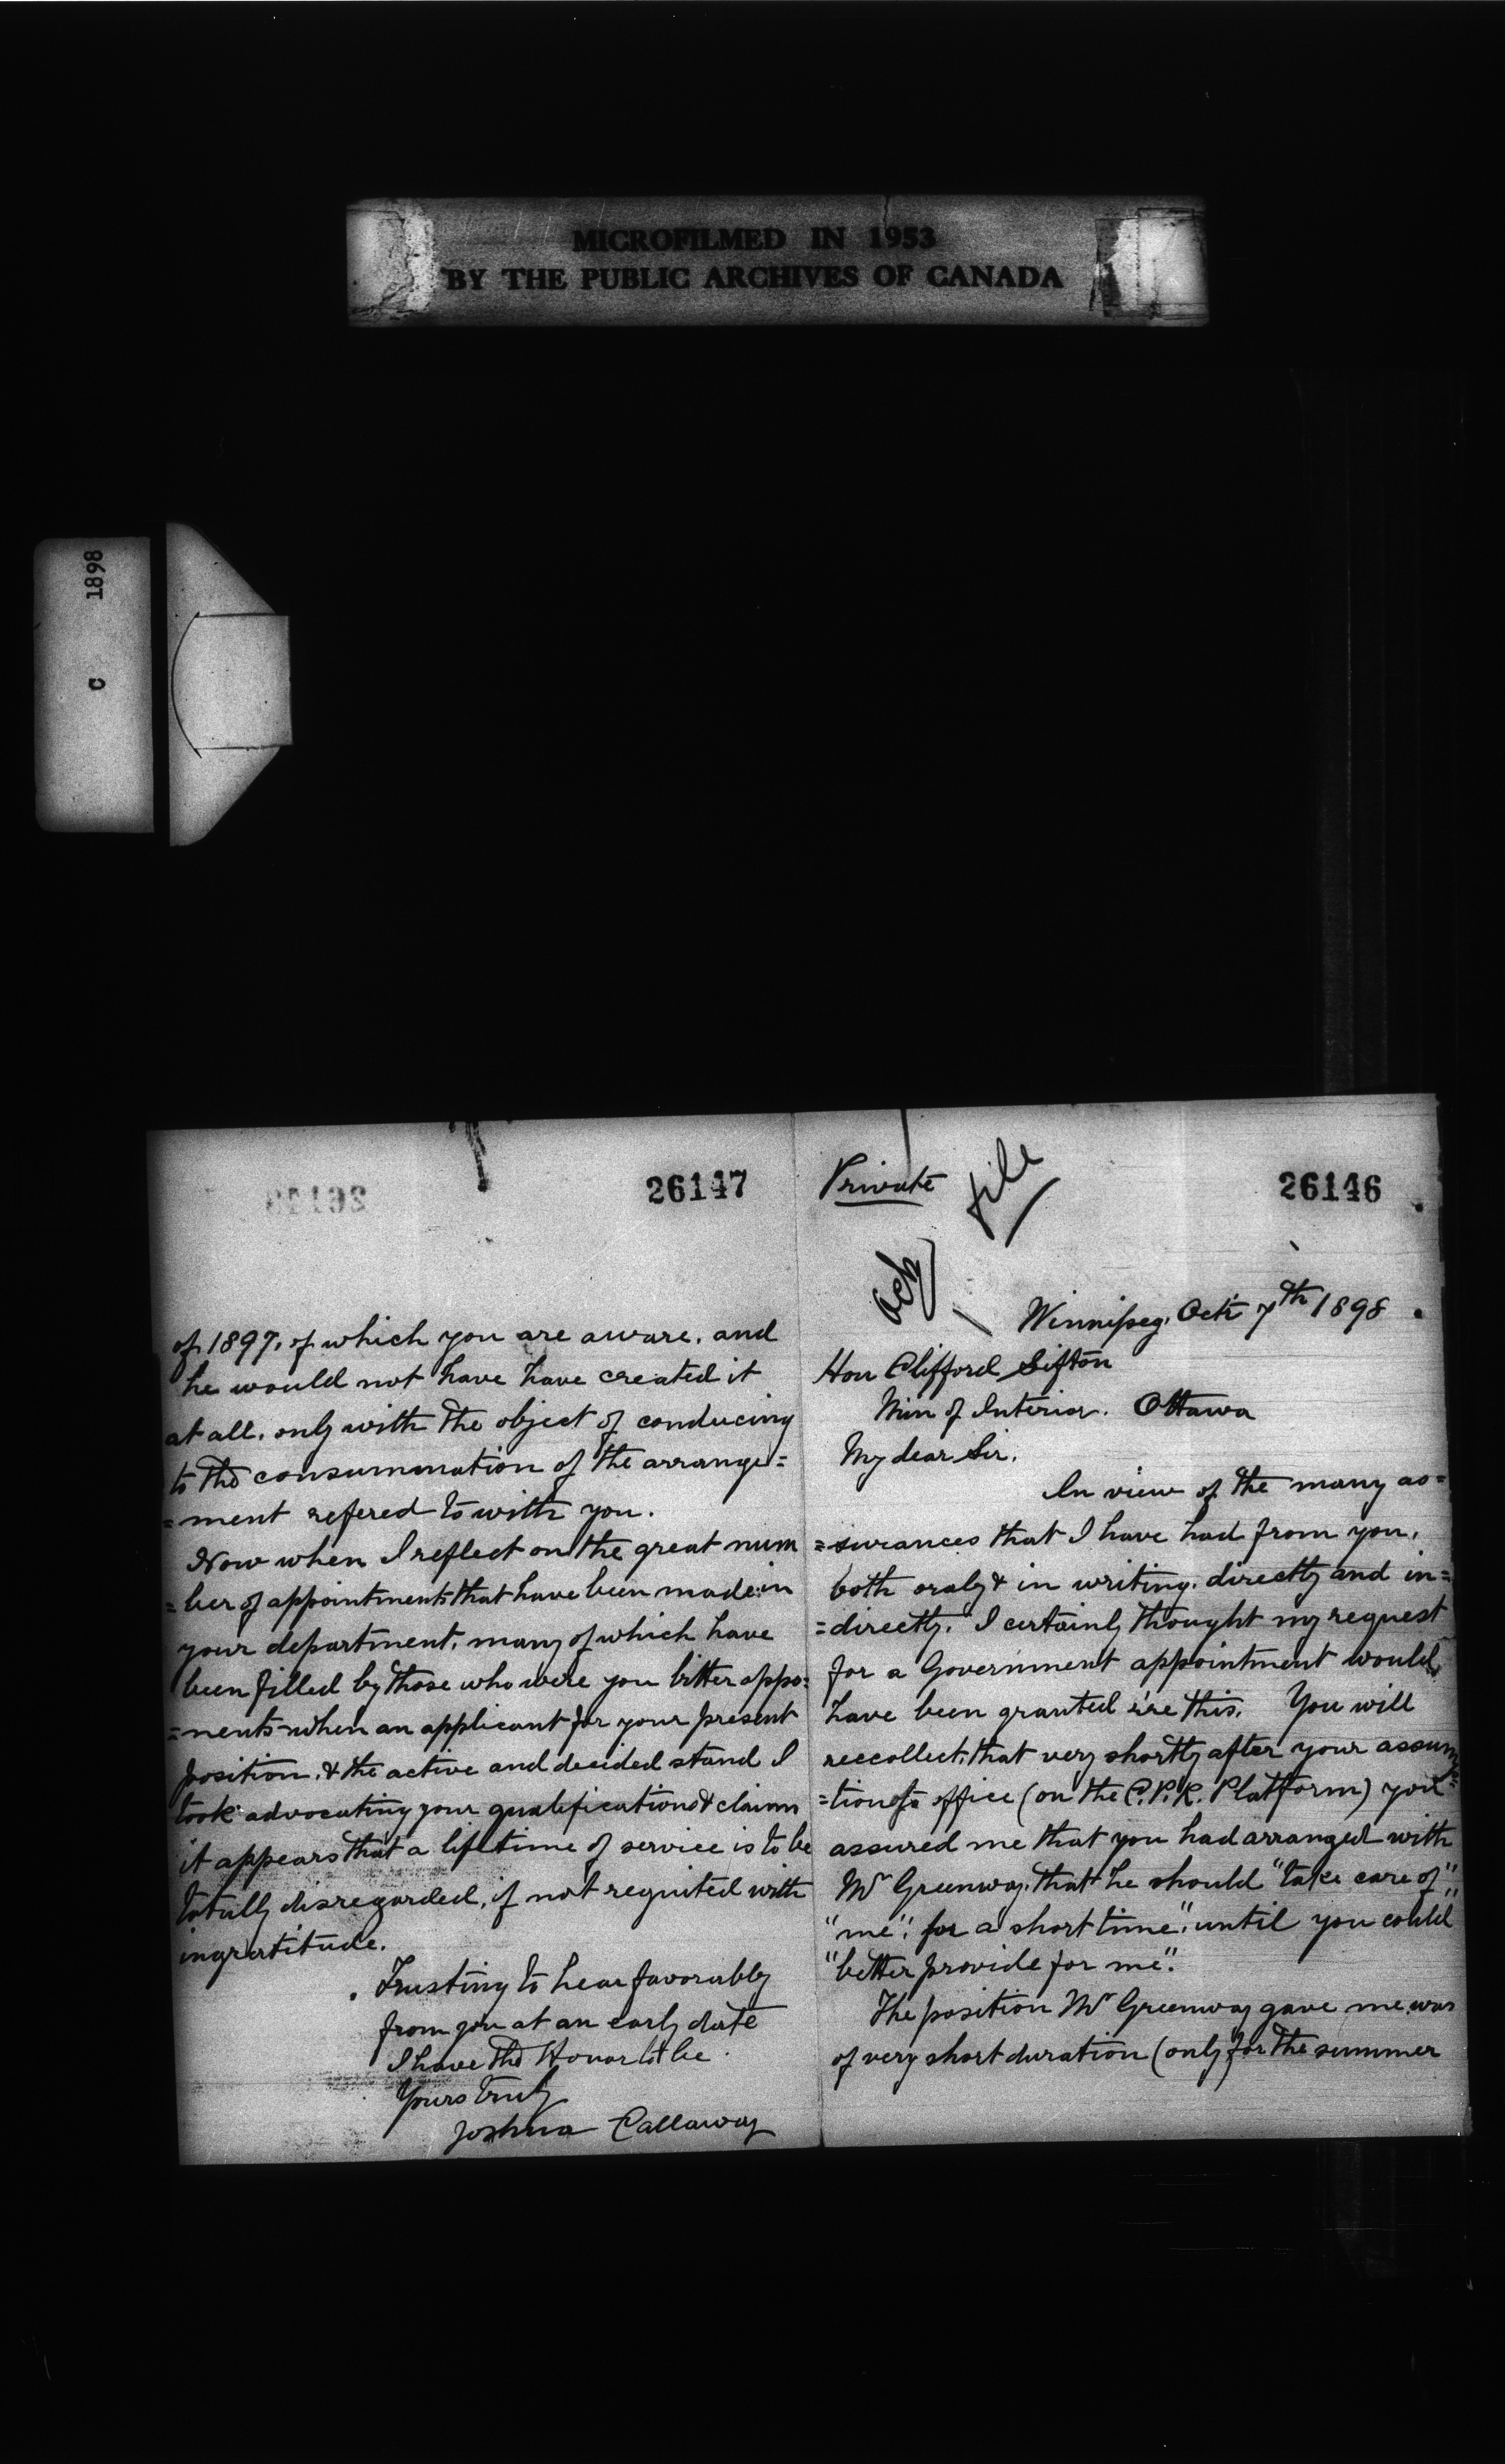 MICROFILMED IN 1953
BY THE PUBLIC ARCHIVES OF CANADA
1898
C
26146
Private
file
Ack
Winnipeg, Octr 7th 1898
Hon Clifford Sifton
Min of Interior. Ottawa
My dear Sir.
In view of the many as=
=surances that I have had from you,
both oraly & in writing, directly and in=
=directly. I certainly thought my request
for a Government appointment would
have been granted e're this. You will
reccollect, that very shortly after your assump=
=tion to office (on the C.P.R. Platform) you
assured me that you had arranged with
Mr Greenway, that he should "take care of"
"me", for a short time", until you could
"better provide for me".
The position Mr Greenway gave me, was
of very short duration (only for the summer
26147
of 1897, of which you are aware, and
he would not have have created it
at all, only with the object of conducing
to the consummation of the arrange=
=ment refered to with you.
Now when I reflect on the great num
=ber of appointments that have been made in
your department, many of which have
been filled by those who were you bitter oppo=
=nents when an applicant for your present
position, & the active and decided stand I
took advocating your qualifications & claims
it appears that a lifetime of service is to be
totally disregarded, if not requited with
ingratitude.
Trusting to hear favorably
from you at an early date
I have the Honor to be
Yours truly
Joshua Callaway